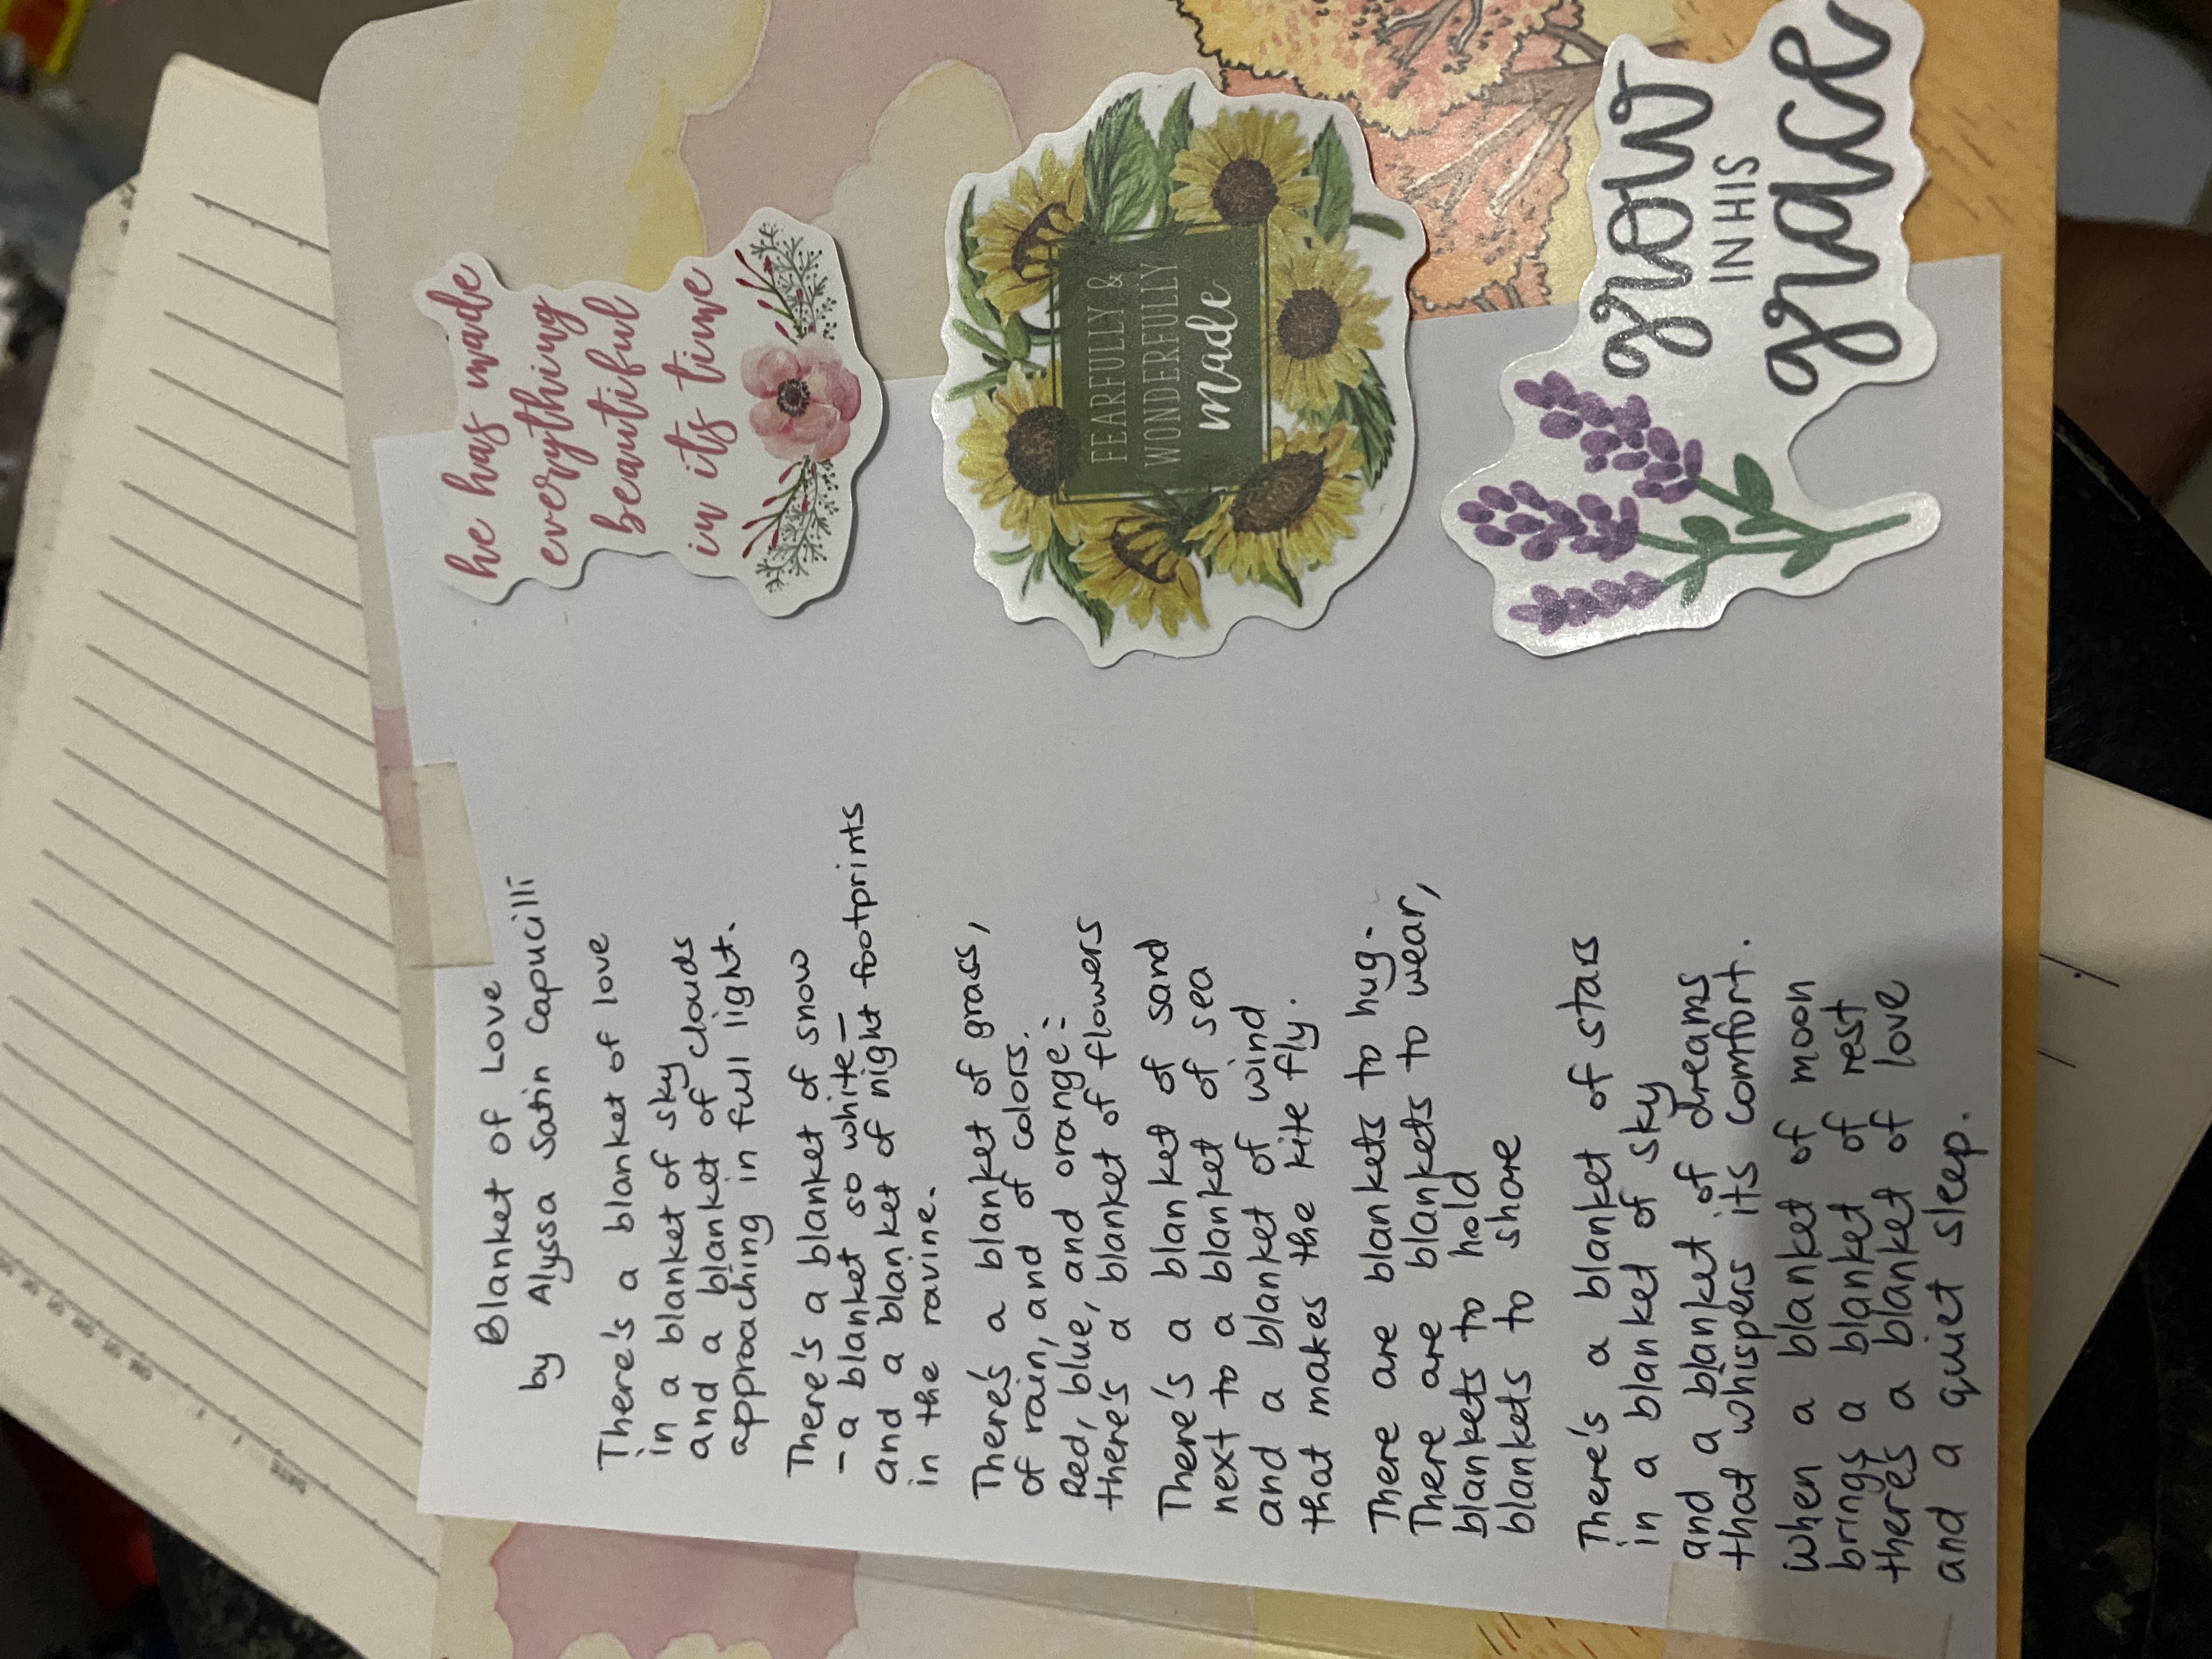 Blanket of Love
by Alyssa Satin Capucilli
There's a blanket of love
in a blanket of sky
and a blanket of clouds
approaching in full light.
There's a blanket of snow
- a blanket so white -
and a blanket of night footprints
in the ravine.
There's a blanket of grass,
of rain, and of colors.
Red, blue, and orange:
there's a blanket of flowers
There's a blanket of sand
next to a blanket of sea
and a blanket of wind
that makes the kite fly.
There are blankets to hug.
There are blankets to wear,
blankets to hold
blankets to share
There's a blanket of stars
in a blanket of sky
and a blanket of dreams
that whispers its comfort.
When a blanket of moon
brings a blanket of rest
there's a blanket of love
and a quiet sleep.
he has made
everything
beautiful
in its time
FEARFULLY &
WONDERFULLY
made
grow
IN HIS
grace